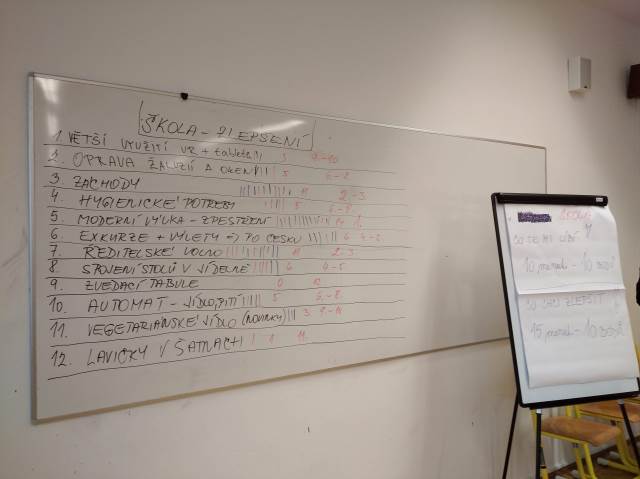 ŠKOLA - ZLEPŠENÍ
1. VĚTŠÍ VYUŽITÍ VR + tablety 3 9.-10
2. OPRAVA ŽALUZIÍ A OKEN 5 6.-8.
3. ZÁCHODY 11 2.-3
4. HYGIENICKÉ POTŘEBY 5 6.-8.
5. MODERNÍ VÝUKA - ZPESTŘENÍ 14 1.
6. EXKURZE + VÝLETY => PO ČESKU 6 4.-5
7. ŘEDITELSKÉ VOLNO 11 2.-3.
8. SPOJENÍ STOLŮ V JÍDELNĚ 6 4.-5
9. ZVEDACÍ TABULE 0 12.
10. AUTOMAT - JÍDLO, PITÍ 5 6.-8.
11. VEGETARIÁNSKÉ JÍDLO (NOVINKY) 3 9.-10.
12. LAVIČKY V ŠATNÁCH 1 11.
ŠKOLA
CO SE MI LÍBÍ
10 minut - 10 bodů
CO CHCI ZLEPŠIT
15 minut - 10 bodů